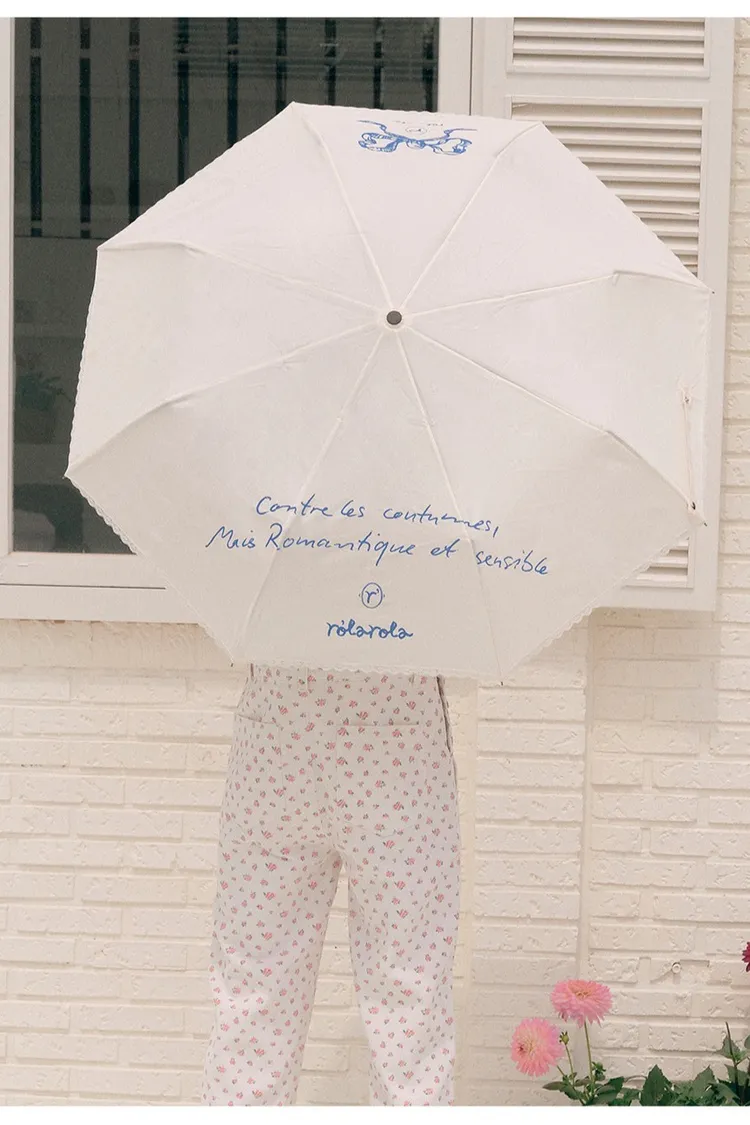 Contre les coutumes,
Mais Romantique et sensible
r
rolarola